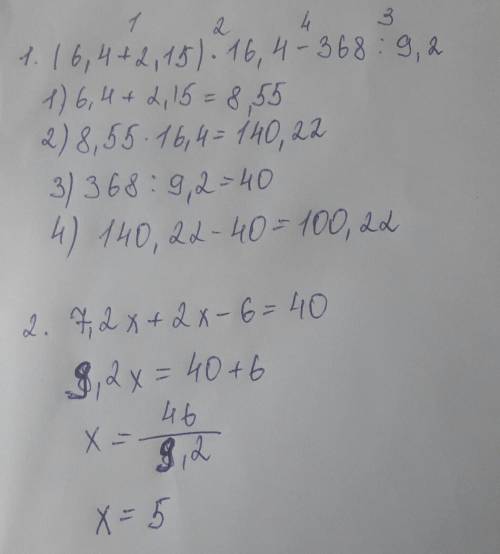 1 2 4 3
1. (6,4+2,15)·16,4-368:9,2
1) 6,4+2,15=8,55
2) 8,55·16,4=140,22
3) 368:9,2=40
4) 140,22-40=100,22
2. 7,2x+2x-6=40
9,2x=40+6
x=46/9,2
x=5